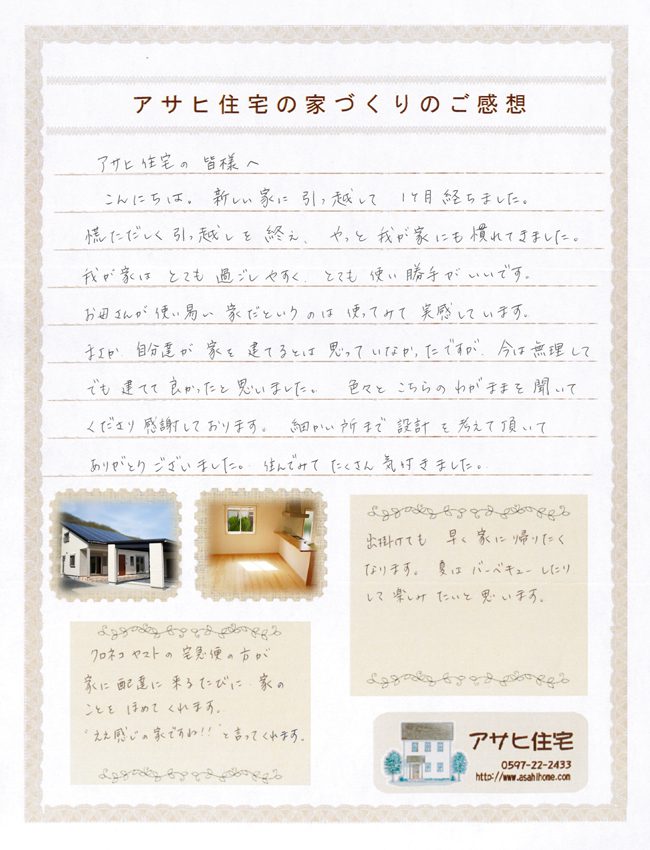 アサヒ住宅の家づくりのご感想
アサヒ住宅の皆様へ
こんにちは。新しい家に引っ越して1ヶ月経ちました。
慌ただしく引っ越しを終え、やっと我が家にも慣れてきました。
我が家はとても過ごしやすく、とても使い勝手がいいです。
お母さんが使い易い家だというのは使ってみて実感しています。
まさか自分達が家を建てるとは思っていなかったですが、今は無理して
でも建てて良かったと思いました。色々とこちらのわがままを聞いて
くださり感謝しております。細かい所まで設計を考えて頂いて
ありがとうございました。住んでみてたくさん気付きました。
出掛けても早く家に帰りたく
なります。夏はバーベキューしたり
して楽しみたいと思います。
クロネコヤマトの宅急便の方が
家に配達に来るたびに、家の
ことをほめてくれます。
"ええ感じの家ですね!!"と言ってくれます。
アサヒ住宅
0597-22-2433
http://www.asahihome.com